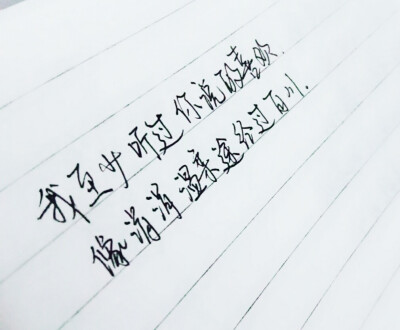 我至少听过你说的喜欢.
像涓涓温柔途经过百川.